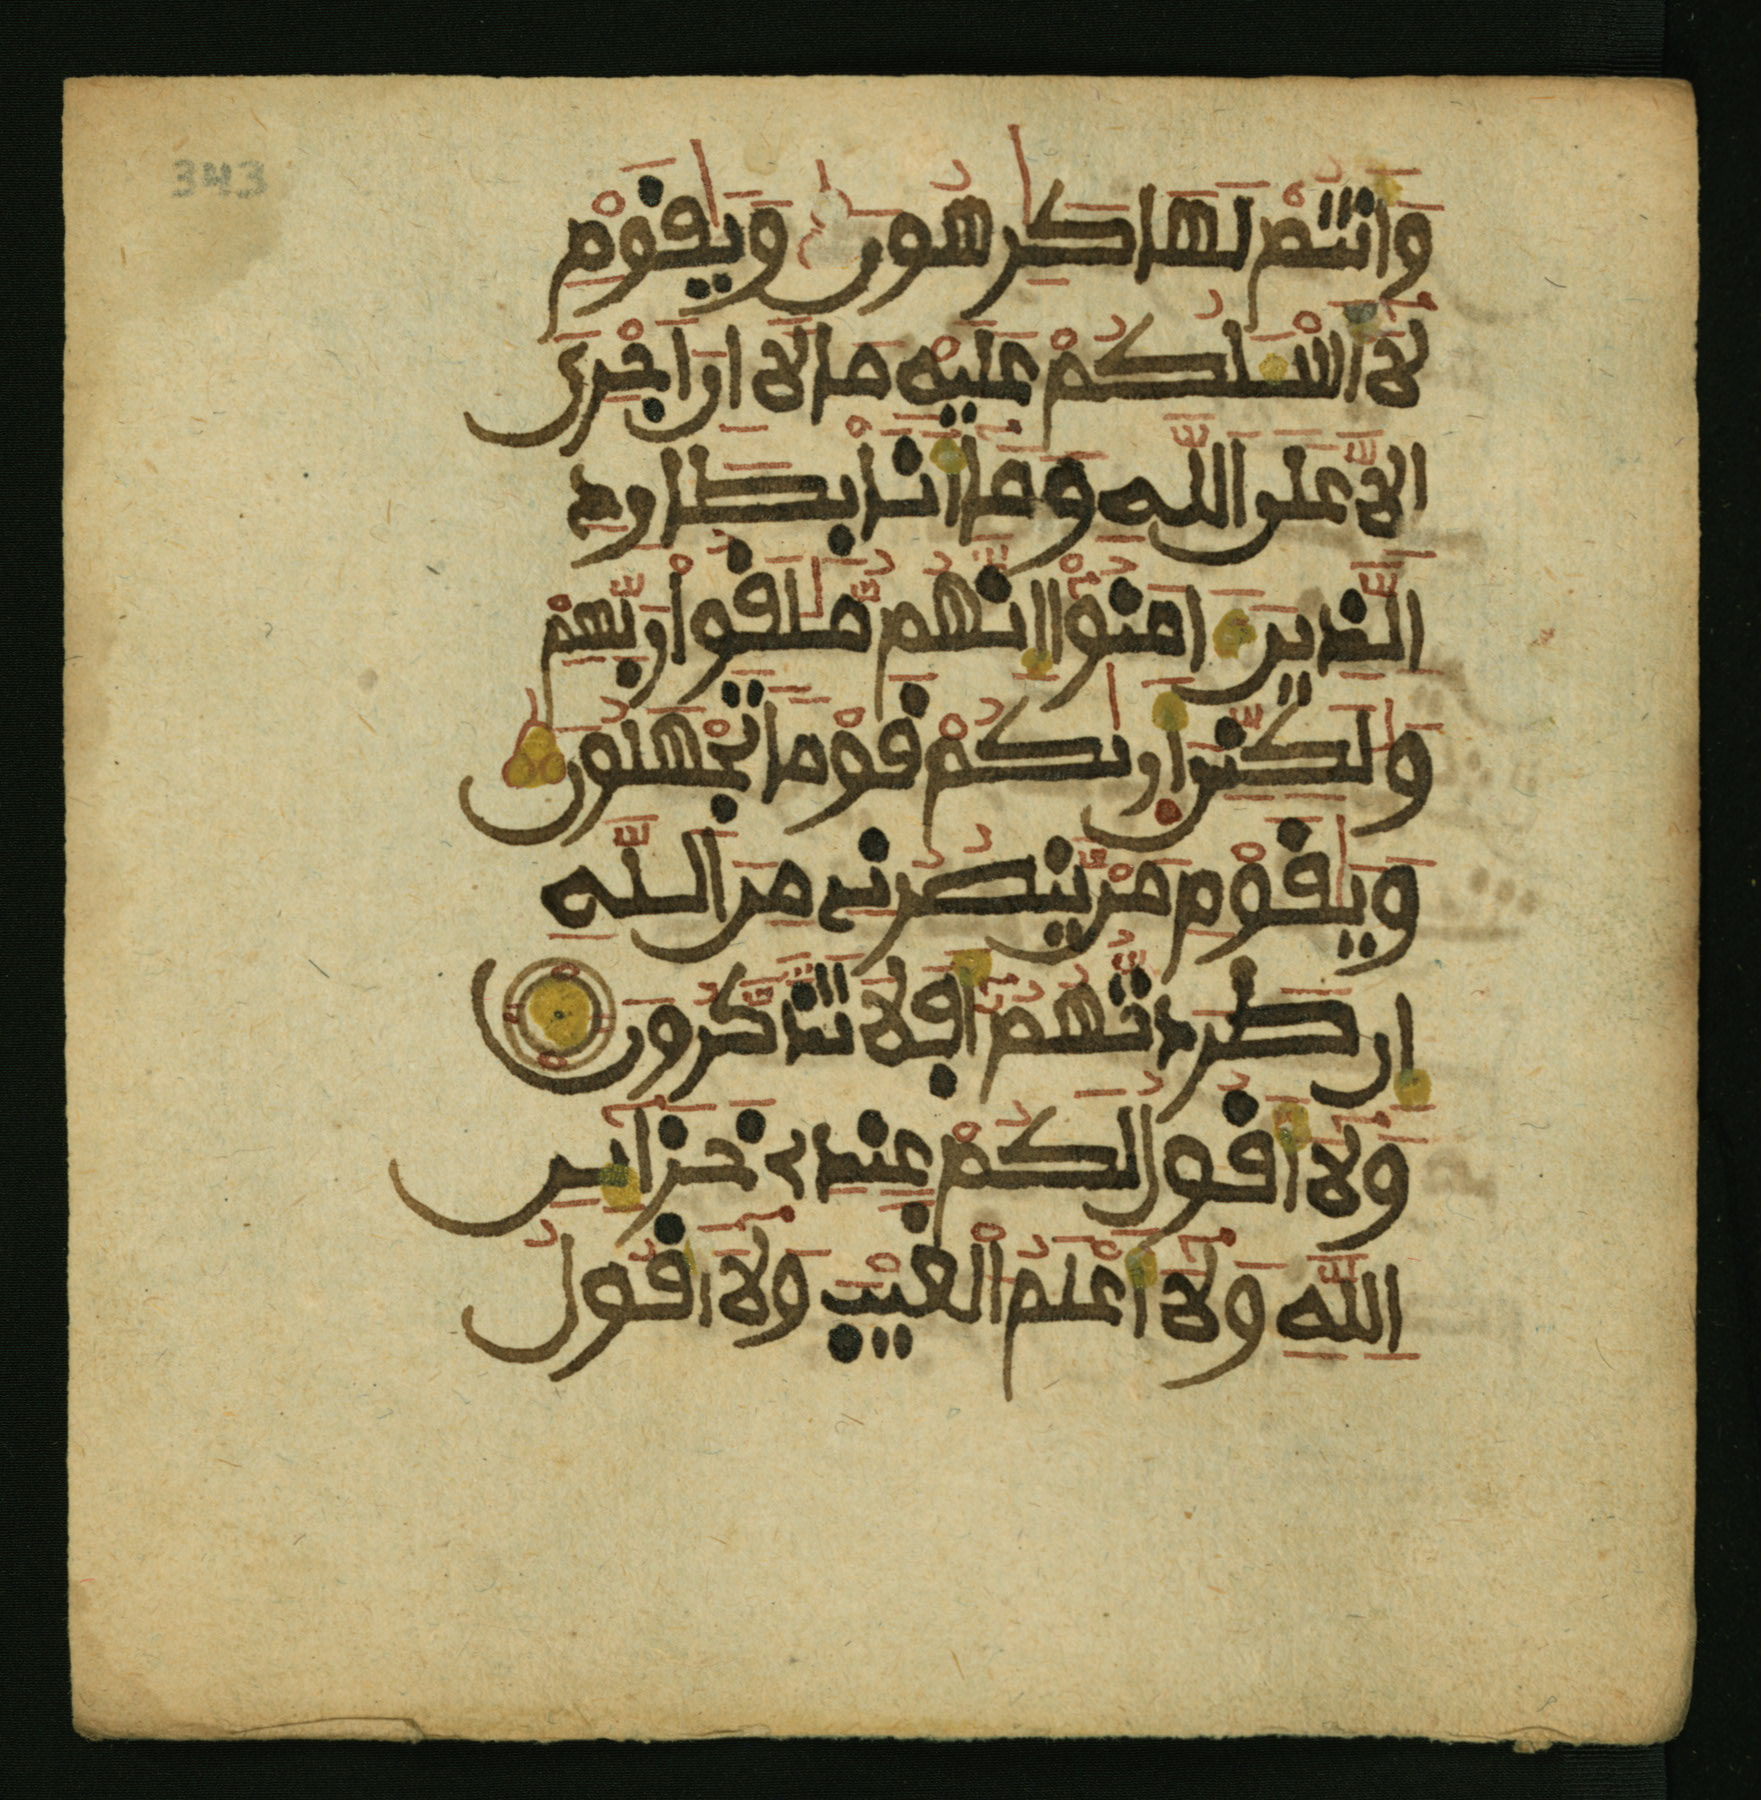 343
وَأَنتُمْ لَهَا كَٰرِهُونَ وَيَٰقَوْمِ
لَآ أَسْـَٔلُكُمْ عَلَيْهِ مَالًا اِنْ أَجْرِيَ
اِلَّا عَلَى اَللَّهِ وَمَآ أَنَا بِطَارِدِ
اِلَّذِينَ ءَامَنُوٓاْ إِنَّهُم مُّلَٰقُواْ رَبِّهِمْ
وَلَٰكِنِّيَ أَر۪ىٰكُمْ قَوْمًا تَجْهَلُونَ
وَيَٰقَوْمِ مَنْ يَّنصُرُنِے مِنَ اَللَّهِ
إِن طَرَدتُّهُمُۥٓ أَفَلَا تَذَّكَّرُونَ
وَلَآ أَقُولُ لَكُمْ عِندِے خَزَآئِنُ
اُللَّهِ وَلَآ أَعْلَمُ اُلْغَيْبَ وَلَآ أَقُولُ